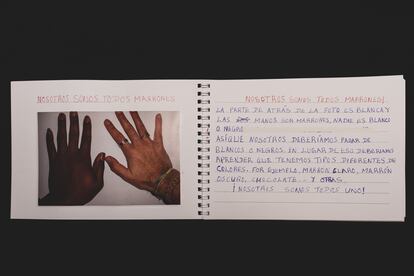 NOSOTROS SOMOS TODOS MARRONES
NOSOTROS SOMOS TODOS MARRONES!
LA PARTE DE ATRÁS DE LA FOTO ES BLANCA Y
LAS MANOS SON MARRONES, NADIE ES BLANCO
O NEGRO
ASÍQUE NOSOTROS DEBERÍAMOS PARAR DE
BLANCOS O NEGROS. EN LUGAR DE ESO DEBERÍAMOS
APRENDER QUE TENEMOS TIPOS DIFERENTES DE
COLORES. POR EJEMPLO, MARRÓN CLARO, MARRÓN
OSCURO, CHOCOLATE... Y OTRAS.
¡NOSOTRIS SOMOS TODOS UNO!